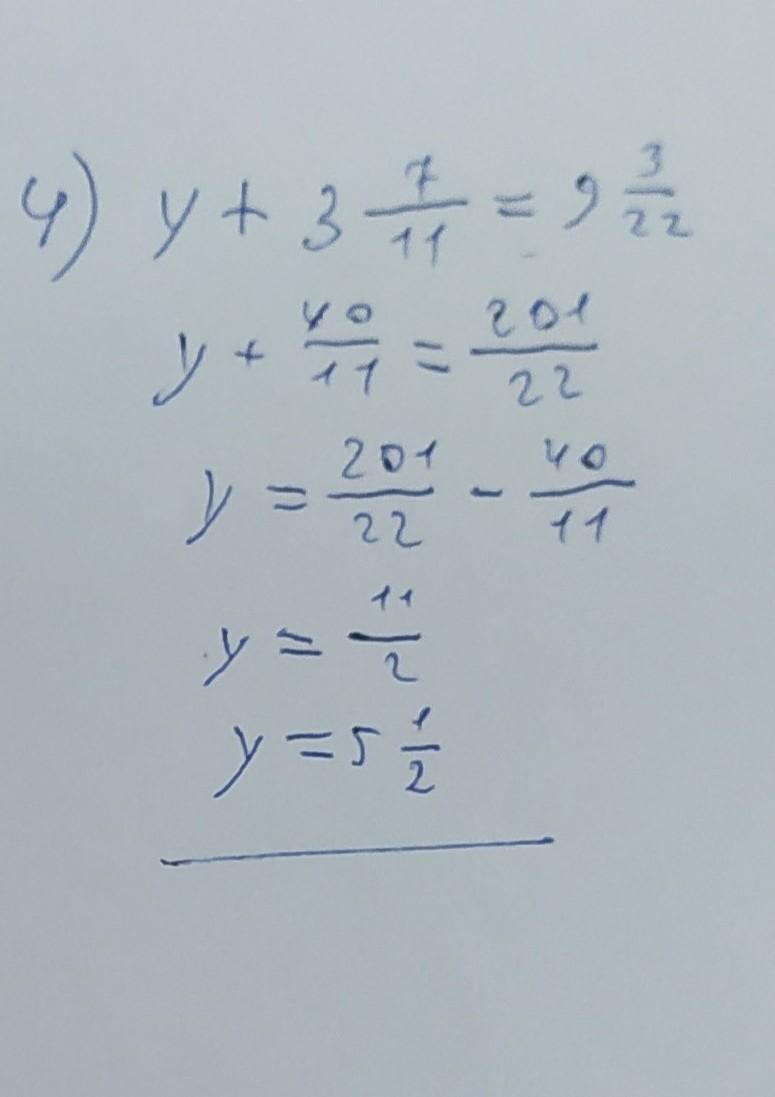 4) y + 3 7/11 = 9 3/22
y + 40/11 = 201/22
y = 201/22 - 40/11
y = 11/2
y = 5 1/2